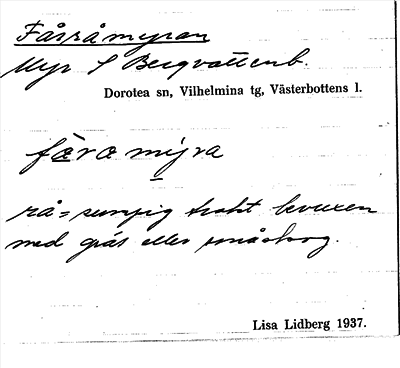 Fårråmyran
Myr S Bergvattenb.
Dorotea sn, Vilhelmina tg, Västerbottens l.
færa mýra
rå = sumpig trakt bevuxen
med gräs eller småskog.
Lisa Lidberg 1937.